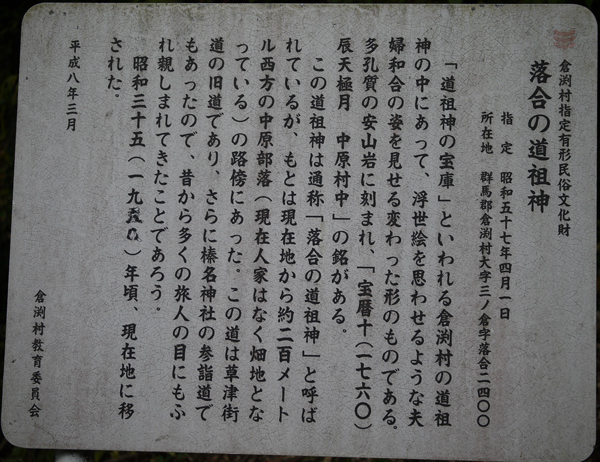 倉渕村指定有形民俗文化財
落合の道祖神
指定 昭和五十七年四月一日
所在地 群馬郡倉渕村大字三ノ倉字落合二四〇〇
「道祖神の宝庫」といわれる倉渕村の道祖
神の中にあって、浮世絵を思わせるような夫
婦和合の姿を見せる変わった形のものである。
多孔質の安山岩に刻まれ、「宝暦十(一七六〇)
辰天極月 中原村中」の銘がある。
この道祖神は通称「落合の道祖神」と呼ば
れているが、もとは現在地から約二百メート
ル西方の中原部落(現在人家はなく畑地とな
っている)の路傍にあった。この道は草津街
道の旧道であり、さらに榛名神社の参詣道で
もあったので、昔から多くの旅人の目にもふ
れ親しまれてきたことであろう。
昭和三十五(一九 )年頃、現在地に移
された。
平成八年三月
倉渕村教育委員会